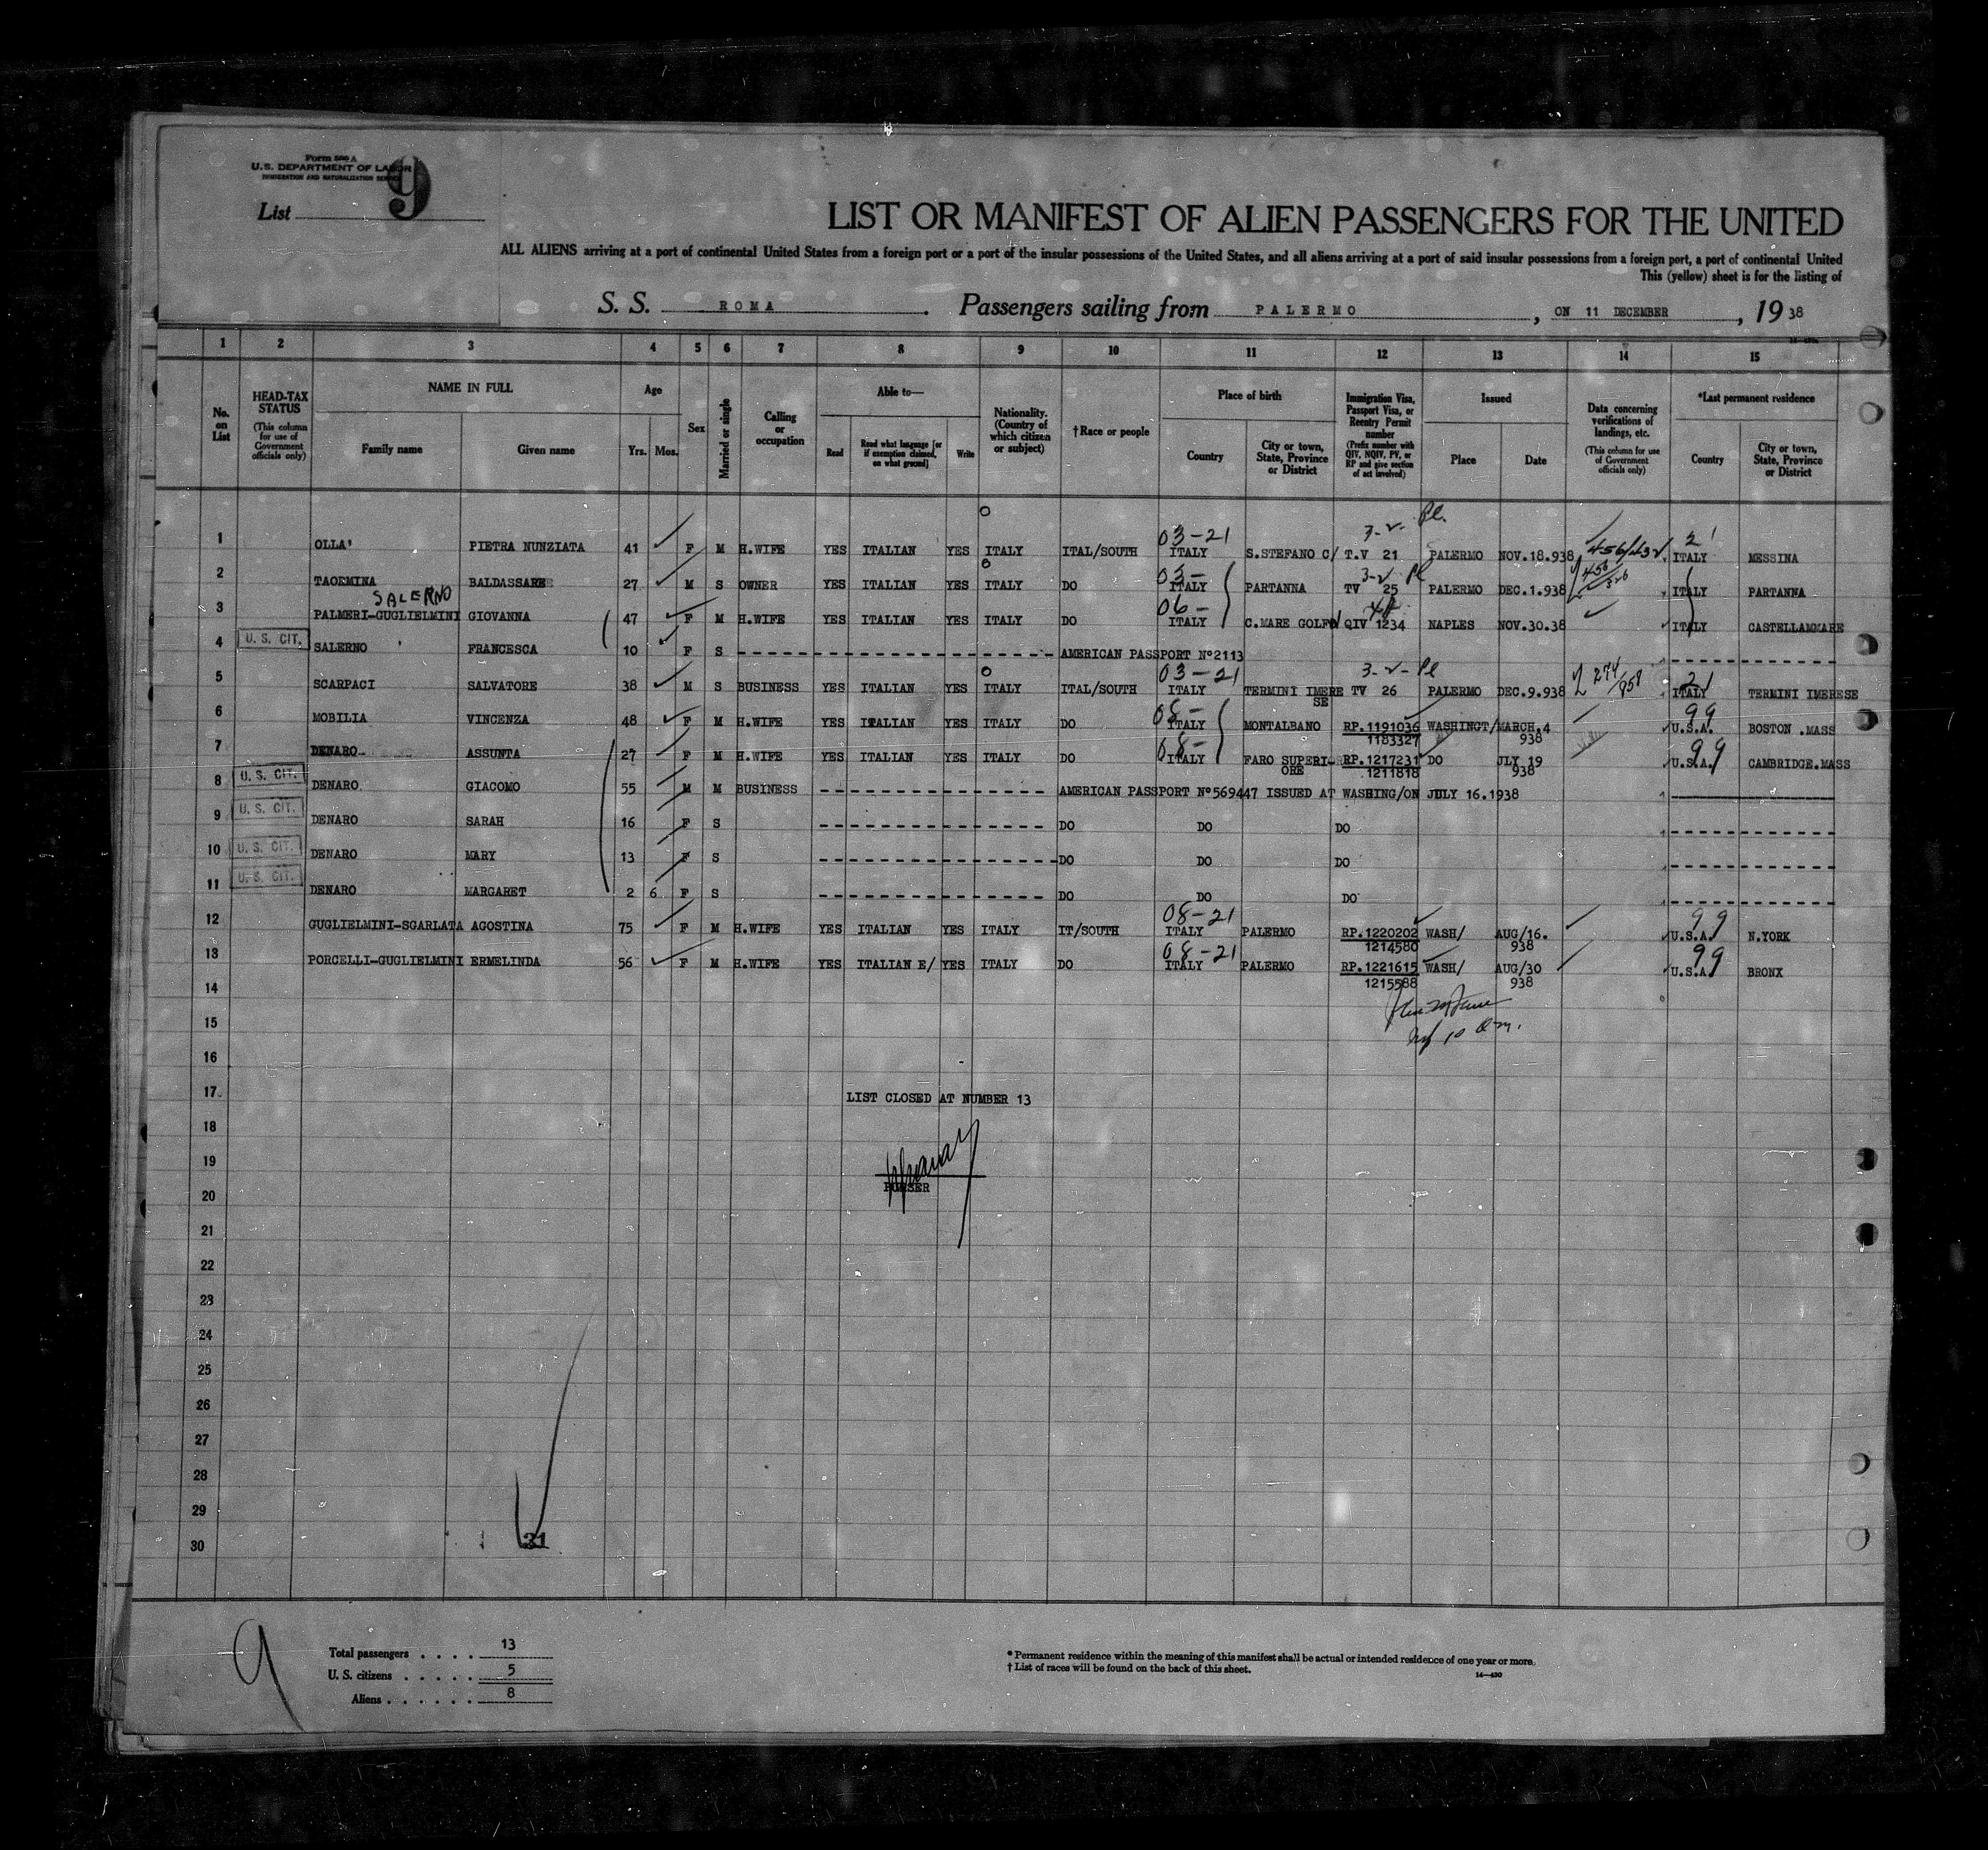 Form 500 A
U.S. DEPARTMENT OF LABOR
IMMIGRATION AND NATURALIZATION SERVICE
List 9
LIST OR MANIFEST OF ALIEN PASSENGERS FOR THE UNITED
ALL ALIENS arriving at a port of continental United States from a foreign port or a port of the insular possessions of the United States, and all aliens arriving at a port of said insular possessions from a foreign port, a port of continental United
This (yellow) sheet is for the listing of
S. S. ROMA. Passengers sailing from PALERMO, ON 11 DECEMBER, 19 38
1 2 3 4 5 6 7 8 9 10 11 12 13 14 15
No. on List
HEAD-TAX STATUS (This column for use of Government officials only)
NAME IN FULL Family name Given name
Age Yrs. Mos.
Sex
Married or single
Calling or occupation
Able to— Read Read what language [or if exemption claimed, on what ground] Write
Nationality. (Country of which citizen or subject)
†Race or people
Place of birth Country City or town, State, Province or District
Immigration Visa, Passport Visa, or Reentry Permit number (Prefix number with QIV, NQIV, PV, or RP and give section of act involved)
Issued Place Date
Data concerning verifications of landings, etc. (This column for use of Government officials only)
*Last permanent residence Country City or town, State, Province or District
03-21 3-2- Pl.
1 OLLA' PIETRA NUNZIATA 41 F M H.WIFE YES ITALIAN YES ITALY ITAL/SOUTH ITALY S.STEFANO C/ T.V 21 PALERMO NOV.18.938 ITALY MESSINA
03- 3-2 Pl
2 TAORMINA BALDASSARE 27 M S OWNER YES ITALIAN YES ITALY DO ITALY PARTANNA TV 25 PALERMO DEC.1.938 ITALY PARTANNA
SALERNO 06-
3 PALMERI-GUGLIELMINI GIOVANNA 47 F M H.WIFE YES ITALIAN YES ITALY DO ITALY C.MARE GOLFO QIV 1234 NAPLES NOV.30.38 ITALY CASTELLAMMARE
4 U. S. CIT. SALERNO FRANCESCA 10 F S AMERICAN PASSPORT Nº2113
03-21 3-2-Pl 274/958 21
5 SCARPACI SALVATORE 38 M S BUSINESS YES ITALIAN YES ITALY ITAL/SOUTH ITALY TERMINI IMERESE TV 26 PALERMO DEC.9.938 ITALY TERMINI IMERESE
08- 99
6 MOBILIA VINCENZA 48 F M H.WIFE YES ITALIAN YES ITALY DO ITALY MONTALBANO RP.1191036 1183327 WASHINGT/ MARCH.4 938 U.S.A. BOSTON .MASS
08- 99
7 DENARO ASSUNTA 27 F M H.WIFE YES ITALIAN YES ITALY DO ITALY FARO SUPERIORE RP.1217231 1211818 DO JLY 19 938 U.S.A. CAMBRIDGE.MASS
8 U. S. CIT. DENARO GIACOMO 55 M M BUSINESS AMERICAN PASSPORT Nº569447 ISSUED AT WASHING/ON JULY 16.1938
9 U. S. CIT. DENARO SARAH 16 F S DO DO DO
10 U. S. CIT. DENARO MARY 13 F S DO DO DO
11 U. S. CIT. DENARO MARGARET 2 6 F S DO DO DO
08-21 99
12 GUGLIELMINI-SGARLATA AGOSTINA 75 F M H.WIFE YES ITALIAN YES ITALY IT/SOUTH ITALY PALERMO RP.1220202 1214580 WASH/ AUG/16. 938 U.S.A. N.YORK
08-21 99
13 PORCELLI-GUGLIELMINI ERMELINDA 56 F M H.WIFE YES ITALIAN E/ YES ITALY DO ITALY PALERMO RP.1221615 1215588 WASH/ AUG/30 938 U.S.A. BRONX
14
15
16
17 LIST CLOSED AT NUMBER 13
18
19
20 PURSER
21
22
23
24
25
26
27
28
29
30 31
9
Total passengers 13
U. S. citizens 5
Aliens 8
* Permanent residence within the meaning of this manifest shall be actual or intended residence of one year or more.
† List of races will be found on the back of this sheet.
14—430